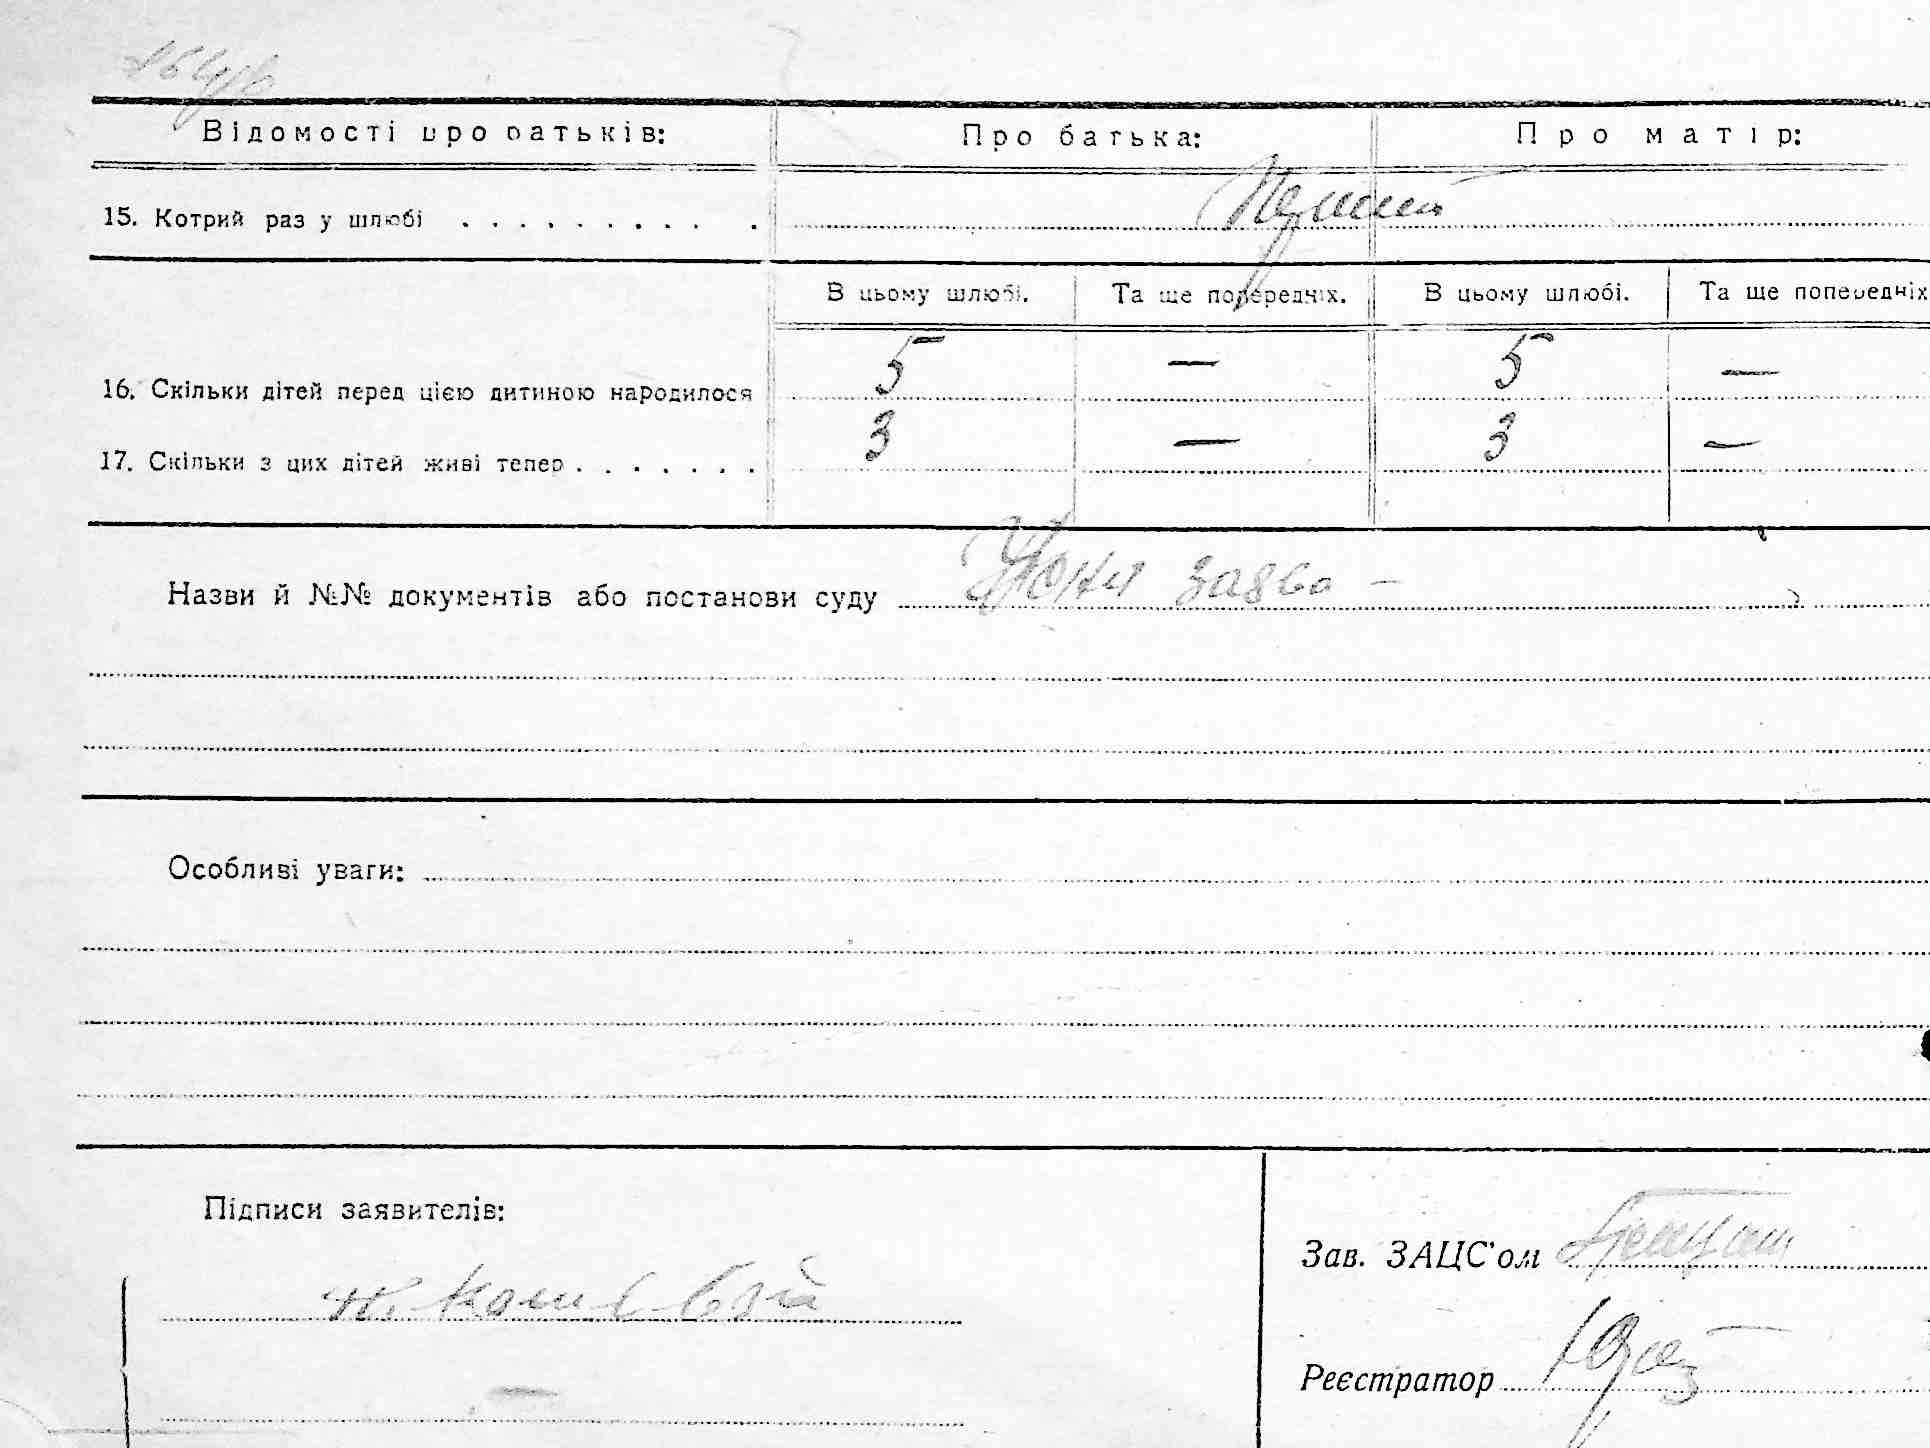 Відомості про батьків: Про батька: Про матір:
15. Котрий раз у шлюбі . . . . . . . . . . Перший
В цьому шлюбі. Та ще попередніх. В цьому шлюбі. Та ще попередніх
16. Скільки дітей перед цією дитиною народилося 5 — 5 —
17. Скільки з цих дітей живі тепер . . . . . . . 3 — 3 —
Назви й №№ документів або постанови суду заява —
Особливі уваги:
Підписи заявителів:
Зав. ЗАЦС'ом
Реєстратор